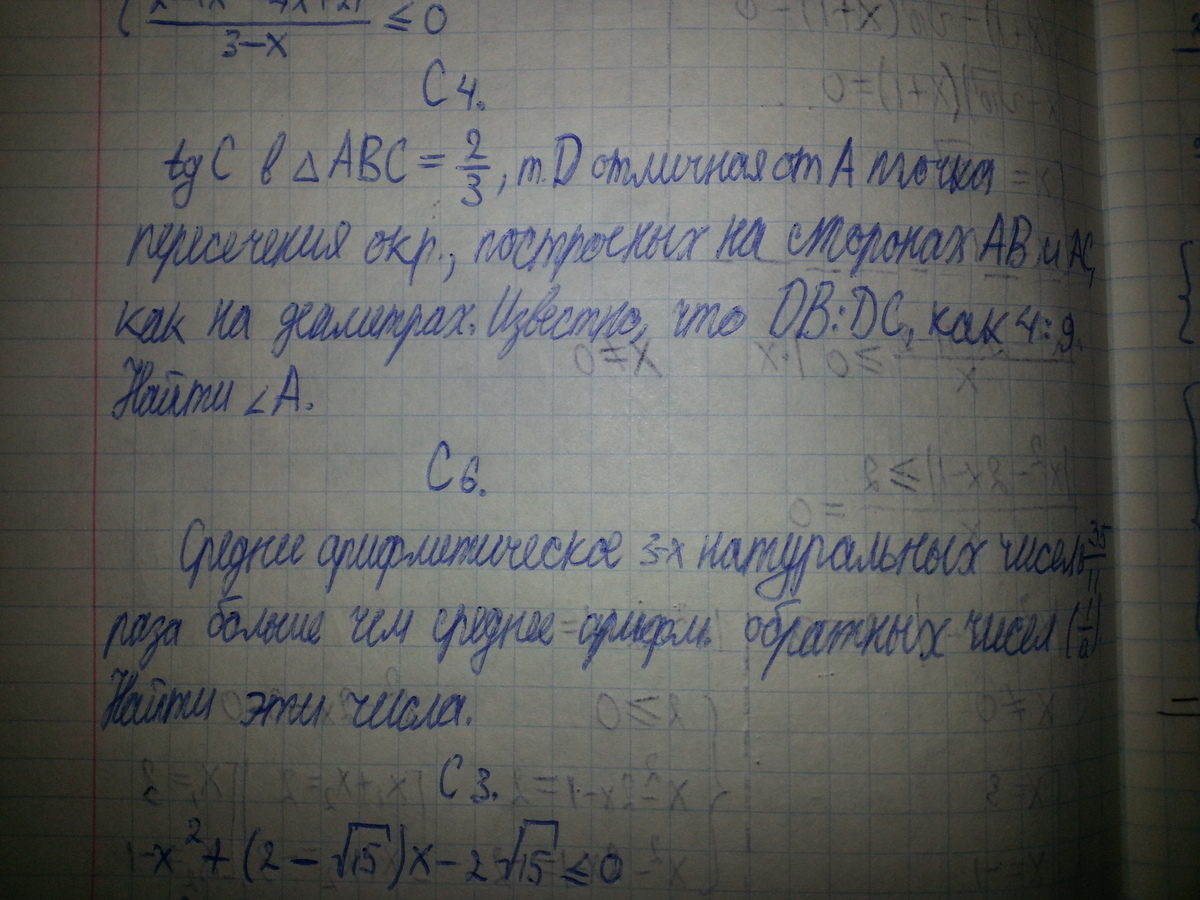 3-x ≤ 0
C 4.
tg C в △ ABC = 2/3, т. D отличная от A точка
пересечения окр., построеных на сторонах AB и AC,
как на деаметрах. Известно, что DB:DC, как 4:9.
Найти ∠A.
C 6.
Среднее арифметическое 3-х натуральных чисел в 35/11
раза больше чем среднее арифм. обратных чисел (1/a)
Найти эти числа.
C 3.
-x² + (2 - √15)x - 2√15 ≤ 0